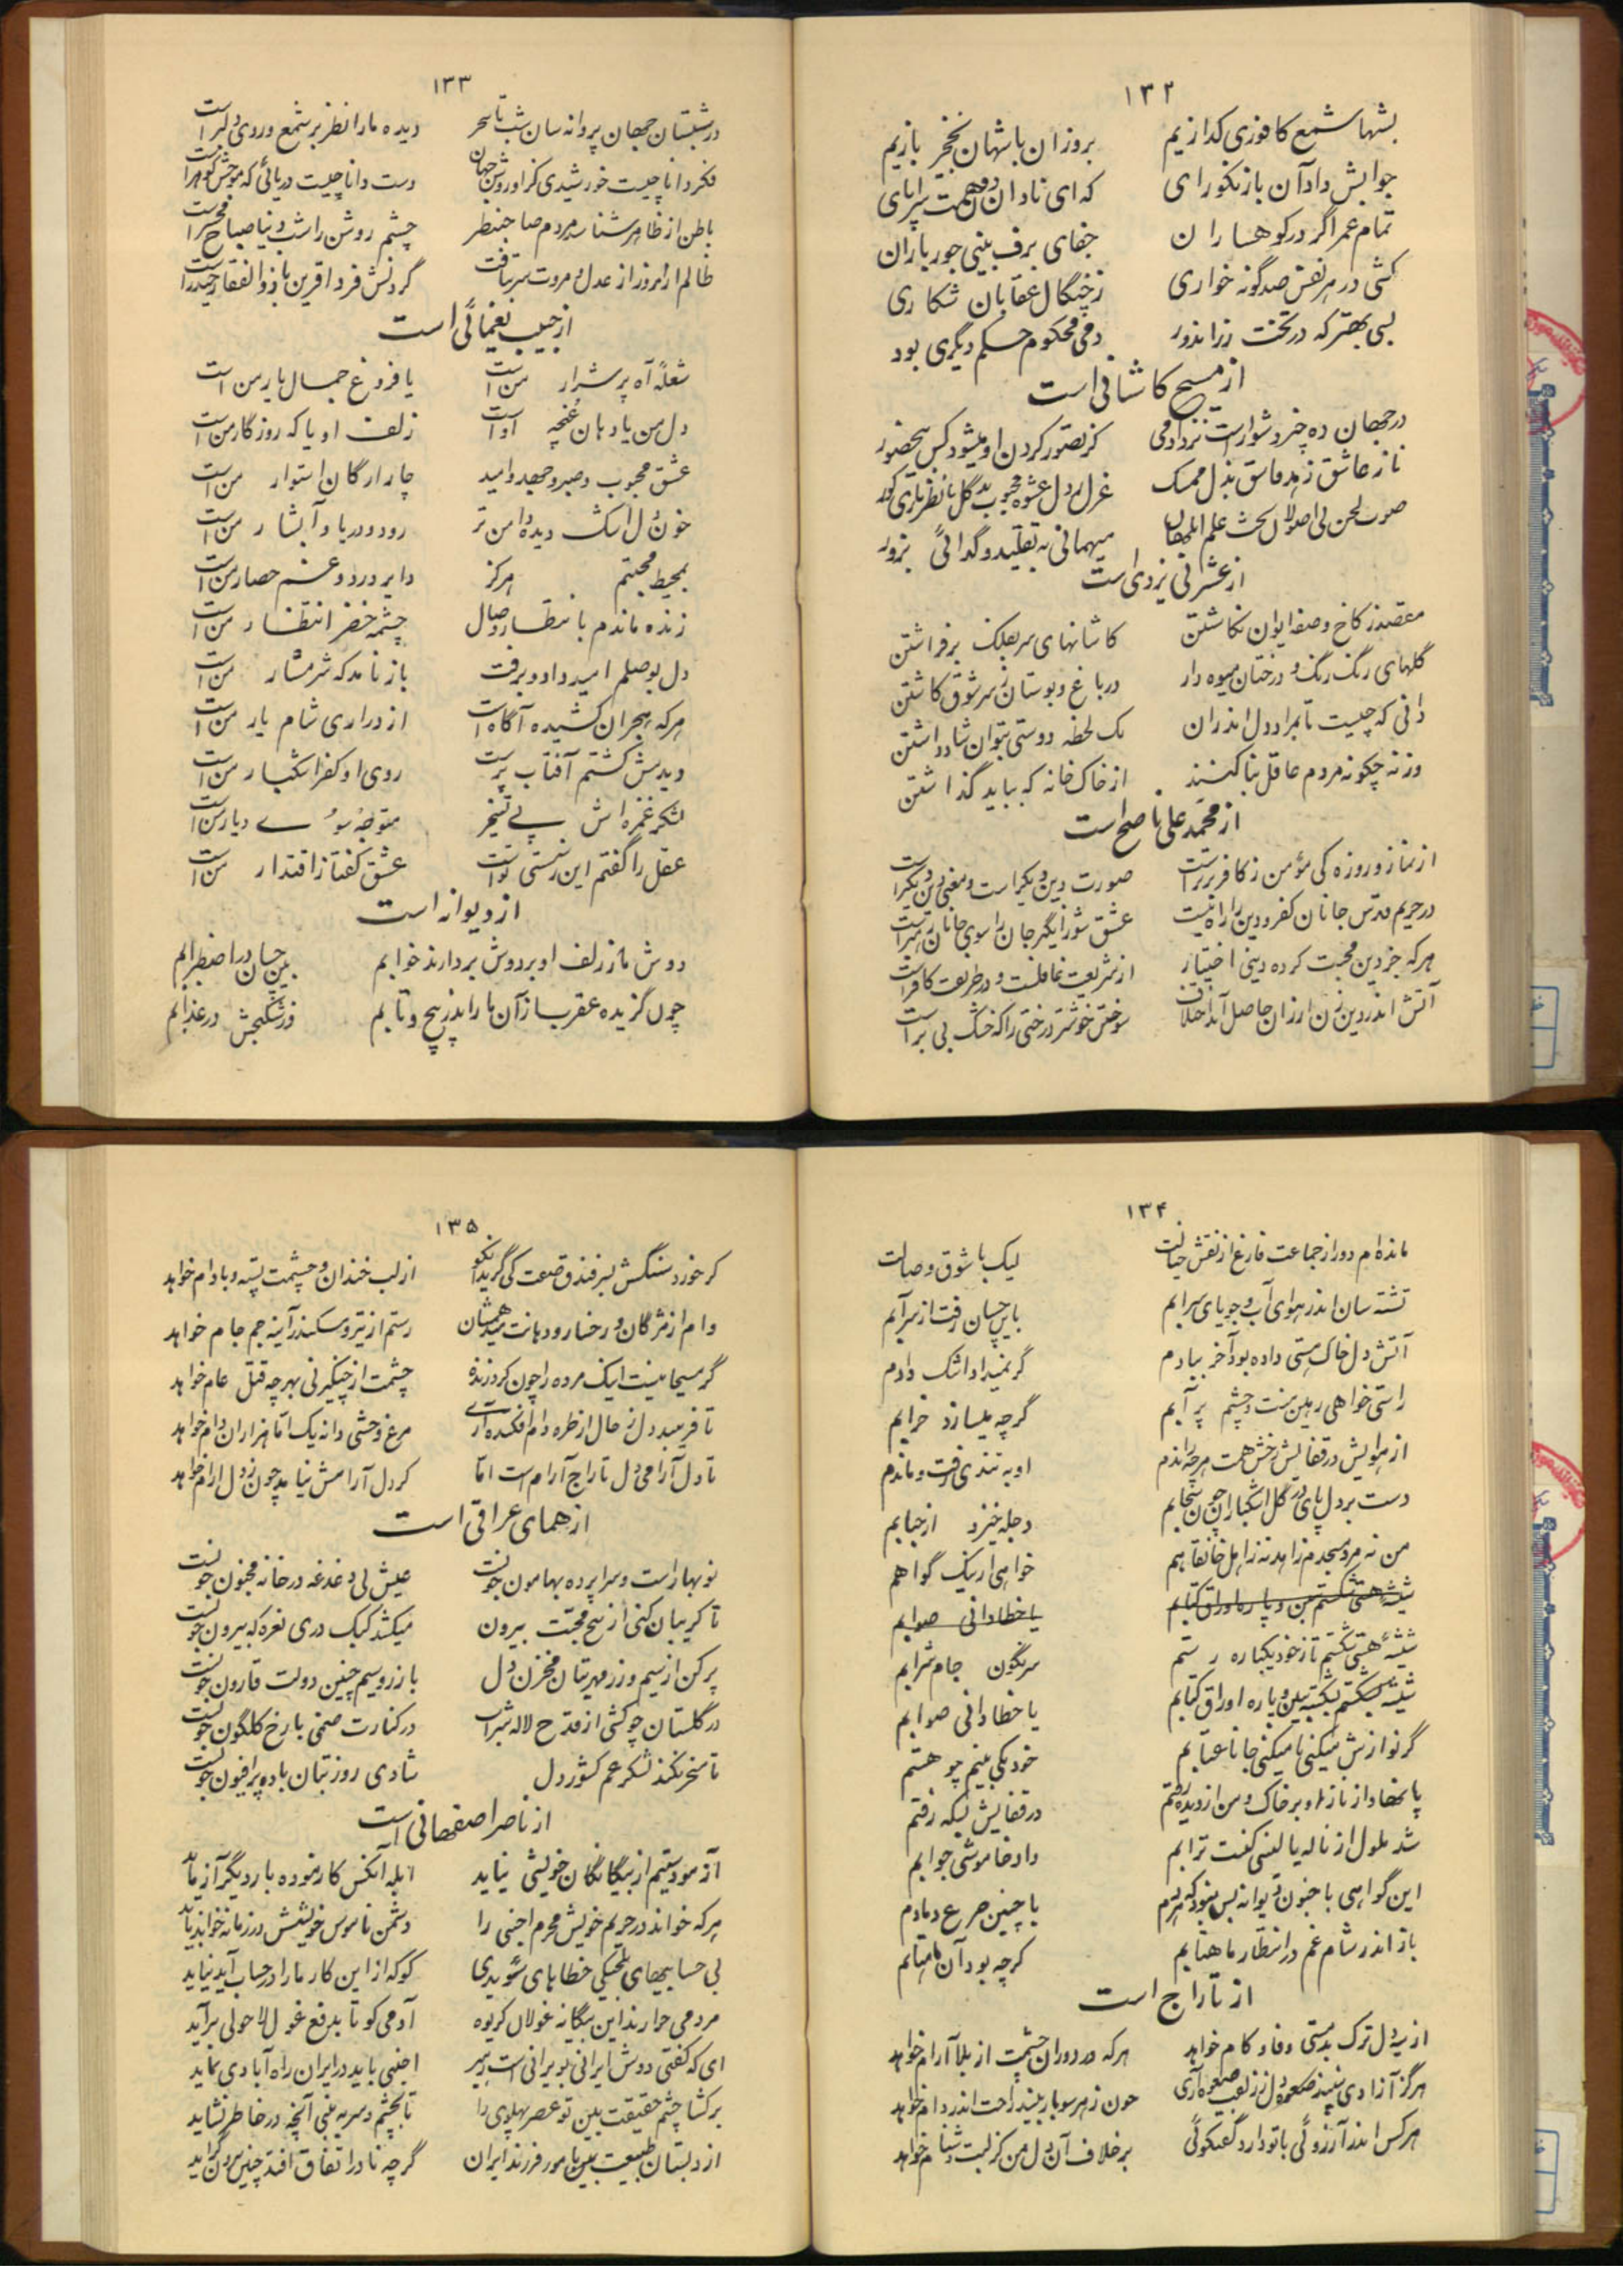 ۱۳۲
بشبها شمع کافوری گدازیم
بروزان باشهان نخجیر بازیم
جوابش داد آن باز نکورای
که ای نادان دون همت سراپای
تمام عمر اگر در کوهساران
جفای برف بینی جور باران
کشی در هر نفس صدگونه خواری
ز چنگال عقابان شکاری
بسی بهتر که در تخت زر اندود
دمی محکوم حکم دیگری بود
از مسیح کاشانی است
در جهان ده چیز دشوار است نزد آدمی
کز تصور کردن او میشود کس بیحضور
ناز عاشق زهد فاسق بذل ممسک
صوت لحن بی اصولان بحث علم ابلهان
میهمانی به تقلید و گدائی بزور
از عشرتی یزدی است
مقصد ز کاخ و صفه ایوان نگاشتن
کاشانهای سر بفلک برفراشتن
گلهای رنگ رنگ و درختان میوه دار
در باغ و بوستان ز سر شوق کاشتن
دانی که چیست تا بمراد دل اندران
یک لحظه دوستی بتوان شاد داشتن
ورنه چگونه مردم عاقل بنا کنند
از خاک خانه که بباید گذاشتن
از محمد علی ناصح است
از نماز و روزه کی مؤمن ز کافر برتر است
صورت دین دیگر است و معنی دین دیگر است
در حریم قدس جانان کفر و دین را راه نیست
عشق شورانگیز جان را سوی جانان رهبر است
هر که جز دین محبت کرده دینی اختیار
از شریعت غافلست و در طریقت کافر است
سوختن خوشتر درختی را که خشک بی بر است
۱۳۳
در شبستان جهان پروانه سان شب تا سحر
دیده ما را نظر بر شمع و روی دلبر است
فکر دانا چیست خورشیدی کز او روشن جهان
دست دانا چیست دریائی که موجش گوهر است
باطن از ظاهر شناسد مردم صاحبنظر
چشم روشن را شب دنیا صباح محشر است
ظالم ار امروز از عدل و مروت سر بتافت
گردنش فردا قرین با ذوالفقار حیدر است
از حبیب یغمائی است
شعلهٔ آه پر شرار من است
یا فروغ جمال یار من است
دل من یا دهان غنچه اوست
زلف او یا که روزگار من است
عشق محبوب و صبر و جهد و امید
چار ارکان استوار من است
خون دل اشک دیده دامن تر
رود و دریا و آبشار من است
بمحیط محبتم مرکز
دایر درد و غم حصار من است
زنده ماندم بانتظار وصال
چشمه خضر انتظار من است
دل بوصلم امید داد و برفت
باز نامد که شرمسار من است
هر که هجران کشیده آگاه است
از درازی شام یار من است
دیدیش گشتم آفتاب پرست
روی او کفر آشکار من است
لشکر غمزه اش پی تسخیر
متوجه سوی دیار من است
عقل را گفتم این ز سستی توست
عشق گفتا ز اقتدار من است
از دیوانه است
دوش ناز زلف او بر دوش بردارند خوابم
بین چسان در اضطرابم
چون گزیده عقرب ساز آن ما را اندر پیچ و تابم
وز شکنجش در عذابم
۱۳۴
مانده ام دور از جماعت فارغ از نقش خیالت
لیک با شوق وصالت
تشنه سان اندر هوای آب و جویای سرابم
بابین چسان رفت از سر آبم
آتش دل خاک هستی داده بود آخر ببادم
گر نمیداد اشک دادم
راستی خواهی رهین منت چشم پر آبم
گرچه میسازد خرابم
او به تندی رفت و ماندم
دست بر دل پای در گل اشکباران چون سحابم
دجله خیزد از حبابم
من نه مرد مسجدم زاهد نه ز اهل خانقاهم
خواهی ار نیک گواهم
یا خطا دانی صوابم
شیشهٔ هستی شکستم تا ز خود یکباره رستم
سرنگون جام شرابم
یا خطا دانی صوابم
گر نوازش میکنی یا میکنی جانا عتابم
خود نکی بینم چو هستم
پا نهاد از ناز او بر خاک و من از دیده رفتم
در قفایش لیکه رفتم
شد ملول از ناله یا لبی گفت ترابم
داد خاموشی جوابم
این گواهی با جنون دیوانه بس نبود که هر دم
با چنین جرع دمادم
باز اندر شام غم در انتظار ماهتابم
گرچه بود آن ماهتابم
از تاراج است
از سیه دل ترک بدمستی وفا و کام خواهد
هر که در دوران چشمت از بلا آرام خواهد
هرگز آزادی نبیند صعوه دل ز زلف
چون ز هر سو بار بیند راحت اندر دام خواهد
هر کس اندر آرزوئی با تو دارد گفتگوئی
بر خلاف آن دل من کز لبت دشنام خواهد
۱۳۵
کز خورد سنگش بسر فندق صفت کی گرید
از لب خندان و چشمت پسته و بادام خواهد
وام از مژگان و رخسار و دهانت
رستم از تیر و سکندر آینه جم جام خواهد
گر مسیحا نیست اینک مرده را چون کرد زنده
چشمت از چنگیز نی بهر چه قتل عام خواهد
تا فریبد دل ز خال از طره دام افکنده آری
مرغ وحشی دانه یک اما هزاران دام خواهد
تا دل آرامی دل تاراج آرام است اما
کز دل آرامش نیاید چون ز دل آرام خواهد
از همای عراقی است
نوبهار است و سراپرده بهامون خوشست
عیش بی دغدغه در خانه مجنون خوشست
تا گریبان کنی از پنج محبت بیرون
میکشد کبک دری نعره که بیرون خوشست
پر کن از سیم و زر مهر بتان مخزن دل
با زر و سیم چنین دولت قارون خوشست
در گلستان چو کشی از قدح لاله شراب
در کنارت صنمی با رخ گلگون خوشست
تا مسخر نکند لشکر غم کشور دل
شادی روز بتان باده پر افیون خوشست
از ناصر اصفهانی است
آزمودستیم از بیگانگان خویشی نیاید
ابله آنکس کازموده بار دیگر آزماید
هر که خواند در حریم خویش محرم اجنبی را
بی حسابیهای بلجیکی خطاهای سویدی
کو که از این کار ما را در حساب آید نیاید
مردمی خوارند این بیگانه غولان کریوه
آدمی کو تا بدفع غول لاحولی برآید
ای که گفتی دوش ایرانی بویرانی است رهبر
اجنبی باید در ایران راه آبادی نماید
بر گشا چشم حقیقت بین تو عصر پهلوی را
تا بچشم سر به بینی آنچه در خاطر نشاید
از دبستان طبیعت بین نامور فرزند ایران
گرچه نادر اتفاق افتد چنین